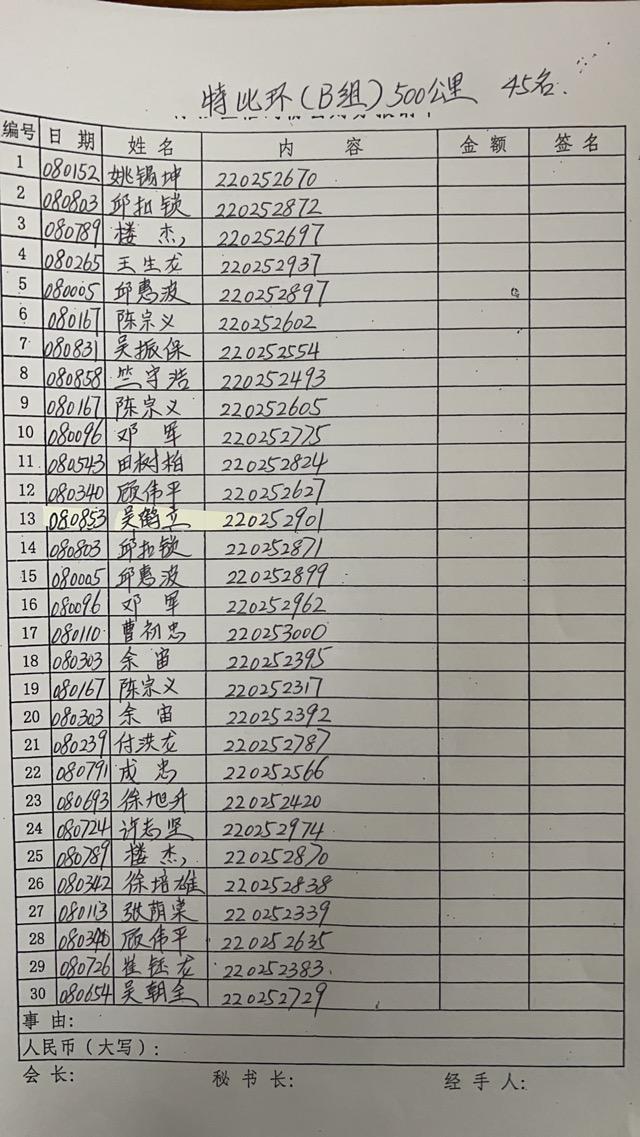 特比环(B组)500公里 45名.
编号 日期 姓名 内容 金额 签名
1 080152 姚锡坤 220252670
2 080803 邱扣锁 220252872
3 080789 楼杰 220252697
4 080265 王生龙 220252937
5 080005 邱惠波 220252897
6 080167 陈宗义 220252602
7 080831 吴振保 220252554
8 080858 竺守浩 220252493
9 080167 陈宗义 220252605
10 080096 邓军 220252775
11 080543 田树柏 220252824
12 080340 顾伟平 220252627
13 080853 吴鹤立 220252901
14 080803 邱扣锁 220252871
15 080005 邱惠波 220252899
16 080096 邓军 220252962
17 080110 曹初忠 220253000
18 080303 余宙 220252395
19 080167 陈宗义 220252317
20 080303 余宙 220252392
21 080239 付洪龙 220252787
22 080791 成忠 220252566
23 080693 徐旭升 220252420
24 080724 许志坚 220252974
25 080789 楼杰 220252870
26 080342 徐培雄 220252838
27 080113 张荫棠 220252339
28 080340 顾伟平 220252635
29 080726 崔钰龙 220252383
30 080654 吴朝全 220252729
事由:
人民币(大写):
会长: 秘书长: 经手人: